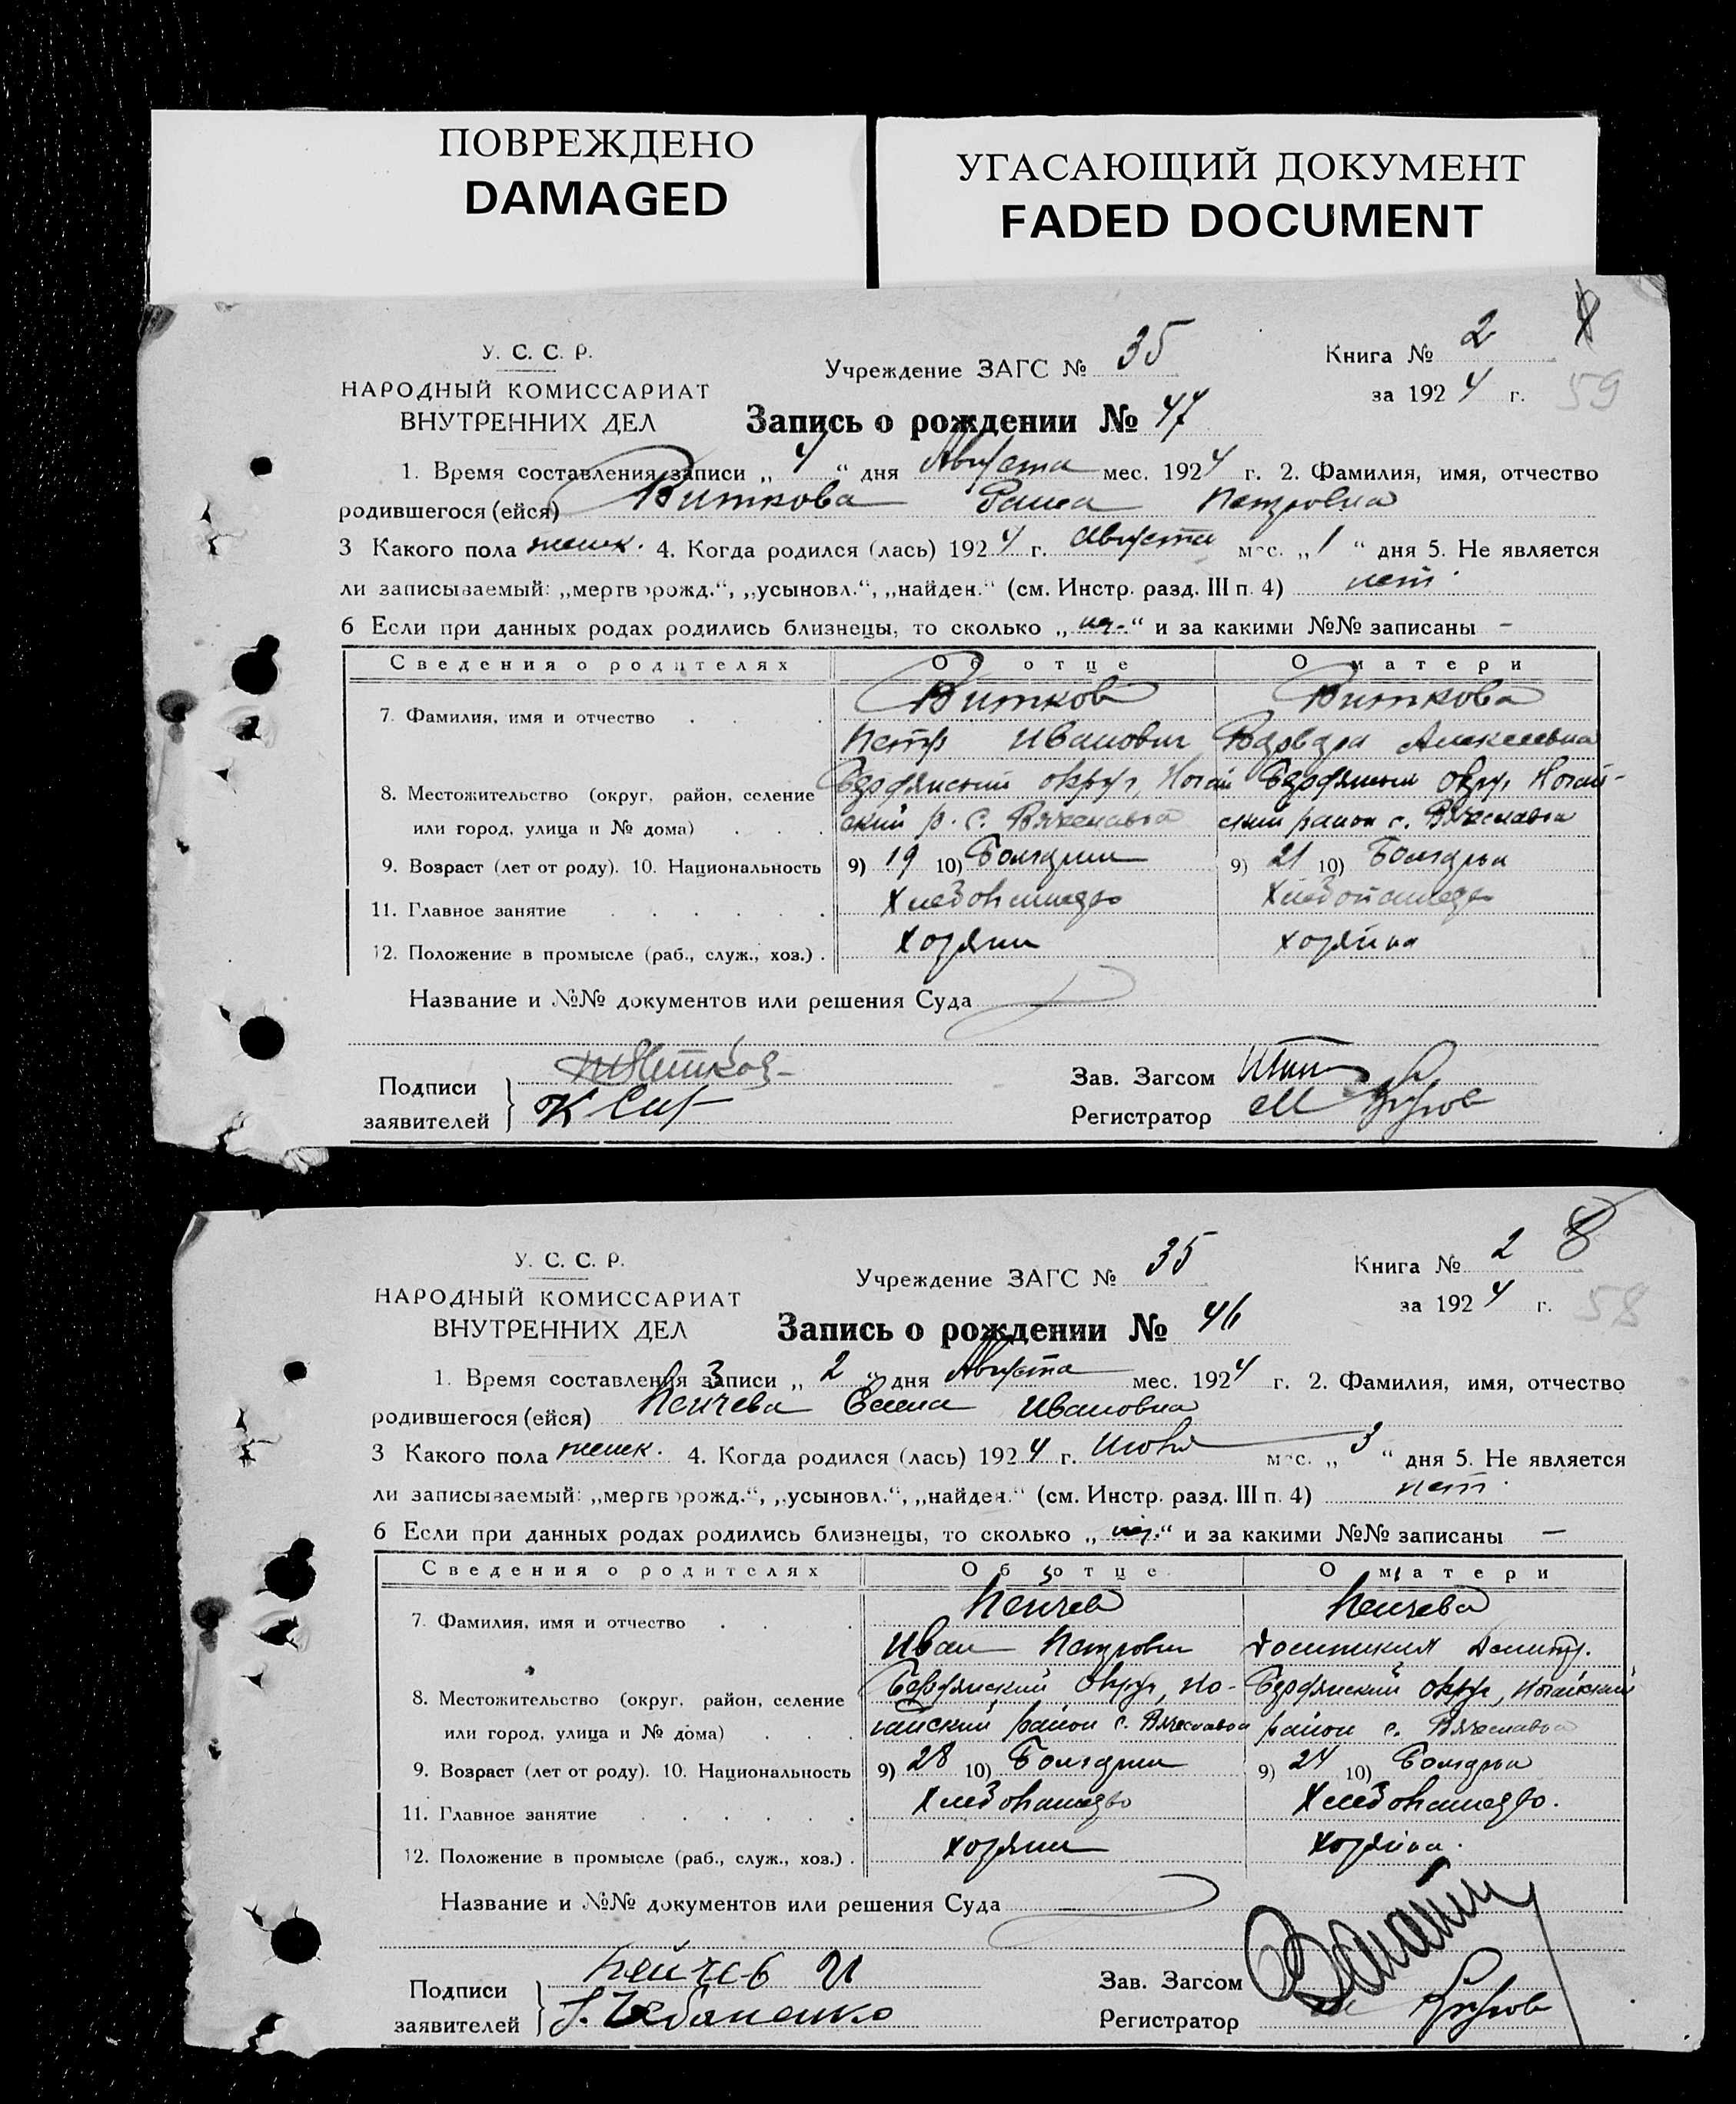 ПОВРЕЖДЕНО
DAMAGED
УГАСАЮЩИЙ ДОКУМЕНТ
FADED DOCUMENT
У. С. С. Р.
НАРОДНЫЙ КОМИССАРИАТ
ВНУТРЕННИХ ДЕЛ
Учреждение ЗАГС № 35
Книга № 2
за 1924 г.
59
Запись о рождении № 47
1. Время составления записи „ 4 “ дня Августа мес. 1924 г. 2. Фамилия, имя, отчество
родившегося (ейся) Виткова Раиса Петровна
3 Какого пола женск. 4. Когда родился (лась) 1924 г. Августа мес. „ 1 “ дня 5. Не является
ли записываемый: „мертворожд.“, „усыновл.“, „найден.“ (см. Инстр. разд. III п. 4) нет
6 Если при данных родах родились близнецы, то сколько „ “ и за какими №№ записаны -
Сведения о родителях Об отце О матери
7. Фамилия, имя и отчество Витков Виткова
Петр Иванович Варвара Алексеевна
8. Местожительство (округ, район, селение Бердянский округ, Ногай Бердянский округ Ногай-
или город, улица и № дома) ский р. с. Вячеславка ский район с. Вячеславка
9. Возраст (лет от роду). 10. Национальность 9) 19 10) Болгарин 9) 21 10) Болгарка
11. Главное занятие Хлебопашество Хлебопашество
12. Положение в промысле (раб., служ., хоз.) . хозяин хозяйка
Название и №№ документов или решения Суда
Подписи
заявителей
Зав. Загсом
Регистратор
У. С. С. Р.
НАРОДНЫЙ КОМИССАРИАТ
ВНУТРЕННИХ ДЕЛ
Учреждение ЗАГС № 35
Книга № 2 8
за 1924 г.
58
Запись о рождении № 46
1. Время составления записи „ 2 “ дня Августа мес. 1924 г. 2. Фамилия, имя, отчество
родившегося (ейся) Пейчева Елена Ивановна
3 Какого пола женск. 4. Когда родился (лась) 1924 г. мес. „ 3 “ дня 5. Не является
ли записываемый: „мертворожд.“, „усыновл.“, „найден.“ (см. Инстр. разд. III п. 4) нет
6 Если при данных родах родились близнецы, то сколько „ “ и за какими №№ записаны —
Сведения о родителях Об отце О матери
7. Фамилия, имя и отчество Пейчев Пейчева
Иван Петрович
8. Местожительство (округ, район, селение Бердянский округ, Но- Бердянский округ, Ногайский
или город, улица и № дома) гайский район с. Вячеславка район с. Вячеславка
9. Возраст (лет от роду). 10. Национальность 9) 28 10) Болгарин 9) 24 10) Болгарка
11. Главное занятие Хлебопашество Хлебопашество.
12. Положение в промысле (раб., служ., хоз.) . хозяин хозяйка.
Название и №№ документов или решения Суда
Подписи Пейчев И
заявителей
Зав. Загсом
Регистратор